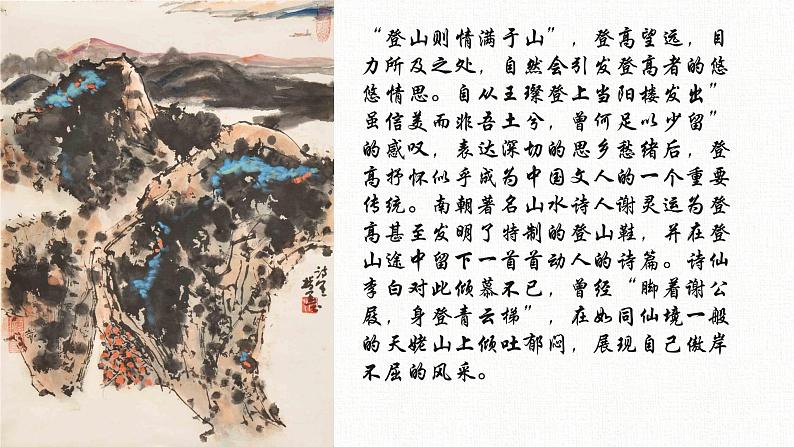 “登山则情满于山”，登高望远，目
力所及之处，自然会引发登高者的悠
悠情思。自从王璨登上当阳楼发出”
虽信美而非吾土兮，曾何足以少留”
的感叹，表达深切的思乡愁绪后，登
高抒怀似乎成为中国文人的一个重要
传统。南朝著名山水诗人谢灵运为登
高甚至发明了特制的登山鞋，并在登
山途中留下一首首动人的诗篇。诗仙
李白对此倾慕不已，曾经“脚着谢公
屐，身登青云梯”，在如同仙境一般
的天姥山上倾吐郁闷，展现自己傲岸
不屈的风采。